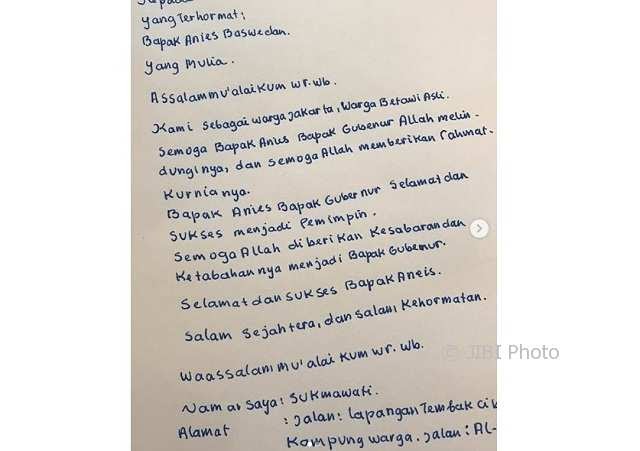 Kepada
yang Terhormat:
Bapak Anies Baswedan.
Yang Mulia.
Assalammu'alaikum wr. wb.
Kami sebagai warga Jakarta, Warga Betawi Asli.
Semoga Bapak Anius Bapak Gubenur Allah melin-
dunginya, dan semoga Allah memberikan rahmat.
Kurnianya.
Bapak Anies Bapak Gubernur Selamat dan
Sukses menjadi Pemimpin.
Semoga Allah diberikan Kesabaran dan
Ketabahannya menjadi Bapak Gubernur.
Selamat dan sukses Bapak Aneis.
Salam Sejahtera, dan salam Kehormatan.
Waassalammu'alaikum wr. wb.
Nama Saya: Sukmawati.
Alamat : Jalan: Lapangan Tembak Cik
Kampung warga. Jalan: AL-
© JIBI Photo